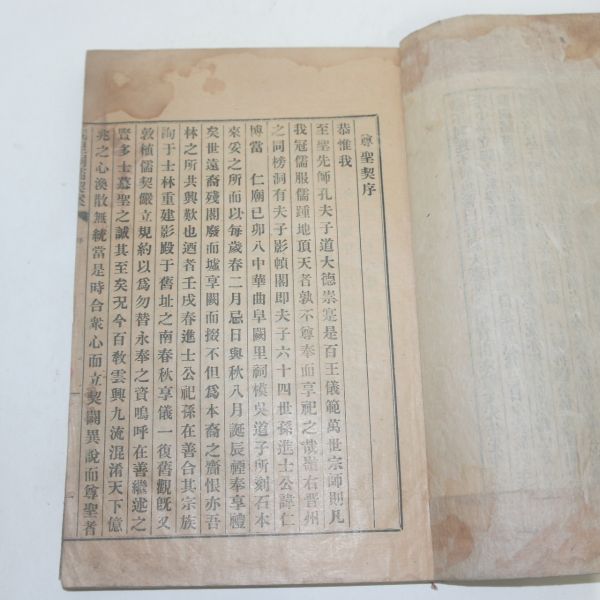 尊聖契序
恭惟我
至聖先師孔夫子道大德崇寔是百王儀範萬世宗師則凡
我冠儒服儒踵地頂天者孰不尊奉而享祀之哉嶺右晋州
之同榜洞有夫子影幀閣即夫子六十四世孫進士公諱仁
博當　仁廟己卯入中華曲阜闕里祠模吳道子所刻石本
來妥之所而以每歲春二月忌日與秋八月誕辰禋奉享禮
矣世遠裔殘閣廢而墟享闕而掇不但爲本裔之齎恨亦吾
林之所共興歎也迺者壬戌春進士公祀孫在善合其宗族
詢于士林重建影殿于舊址之南春秋享儀一復舊觀旣又
敦植儒契嚴立規約以爲勿替永奉之資嗚呼在善繼述之
賢多士慕聖之誠其至矣況今百敎雲興九流混淆天下億
兆之心渙散無統當是時合衆心而立契闢異說而尊聖者